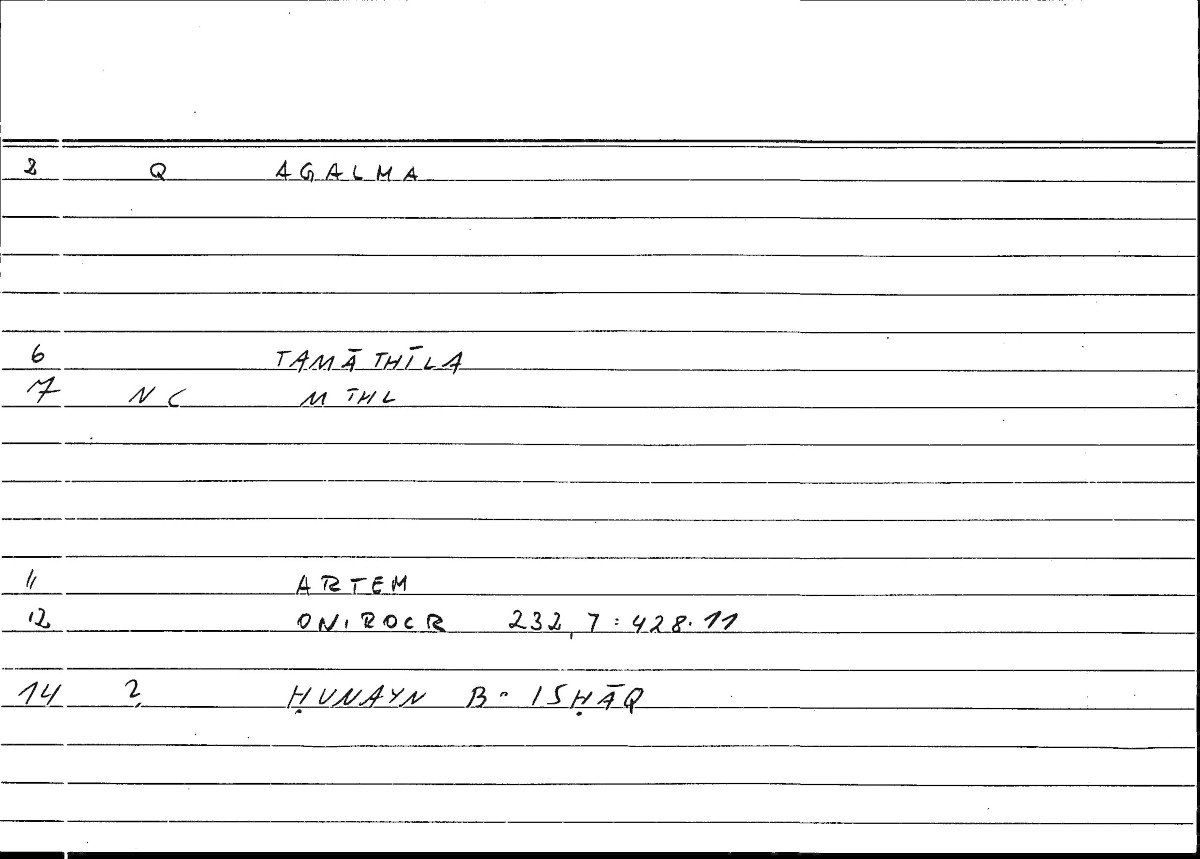 2 Q AGALMA
6 TAMĀTHĪLA
7 NC MTHL
11 ARTEM
12 ONIROCR 232,7:428.11
14 2 ḤUNAYN B. ISḤĀQ